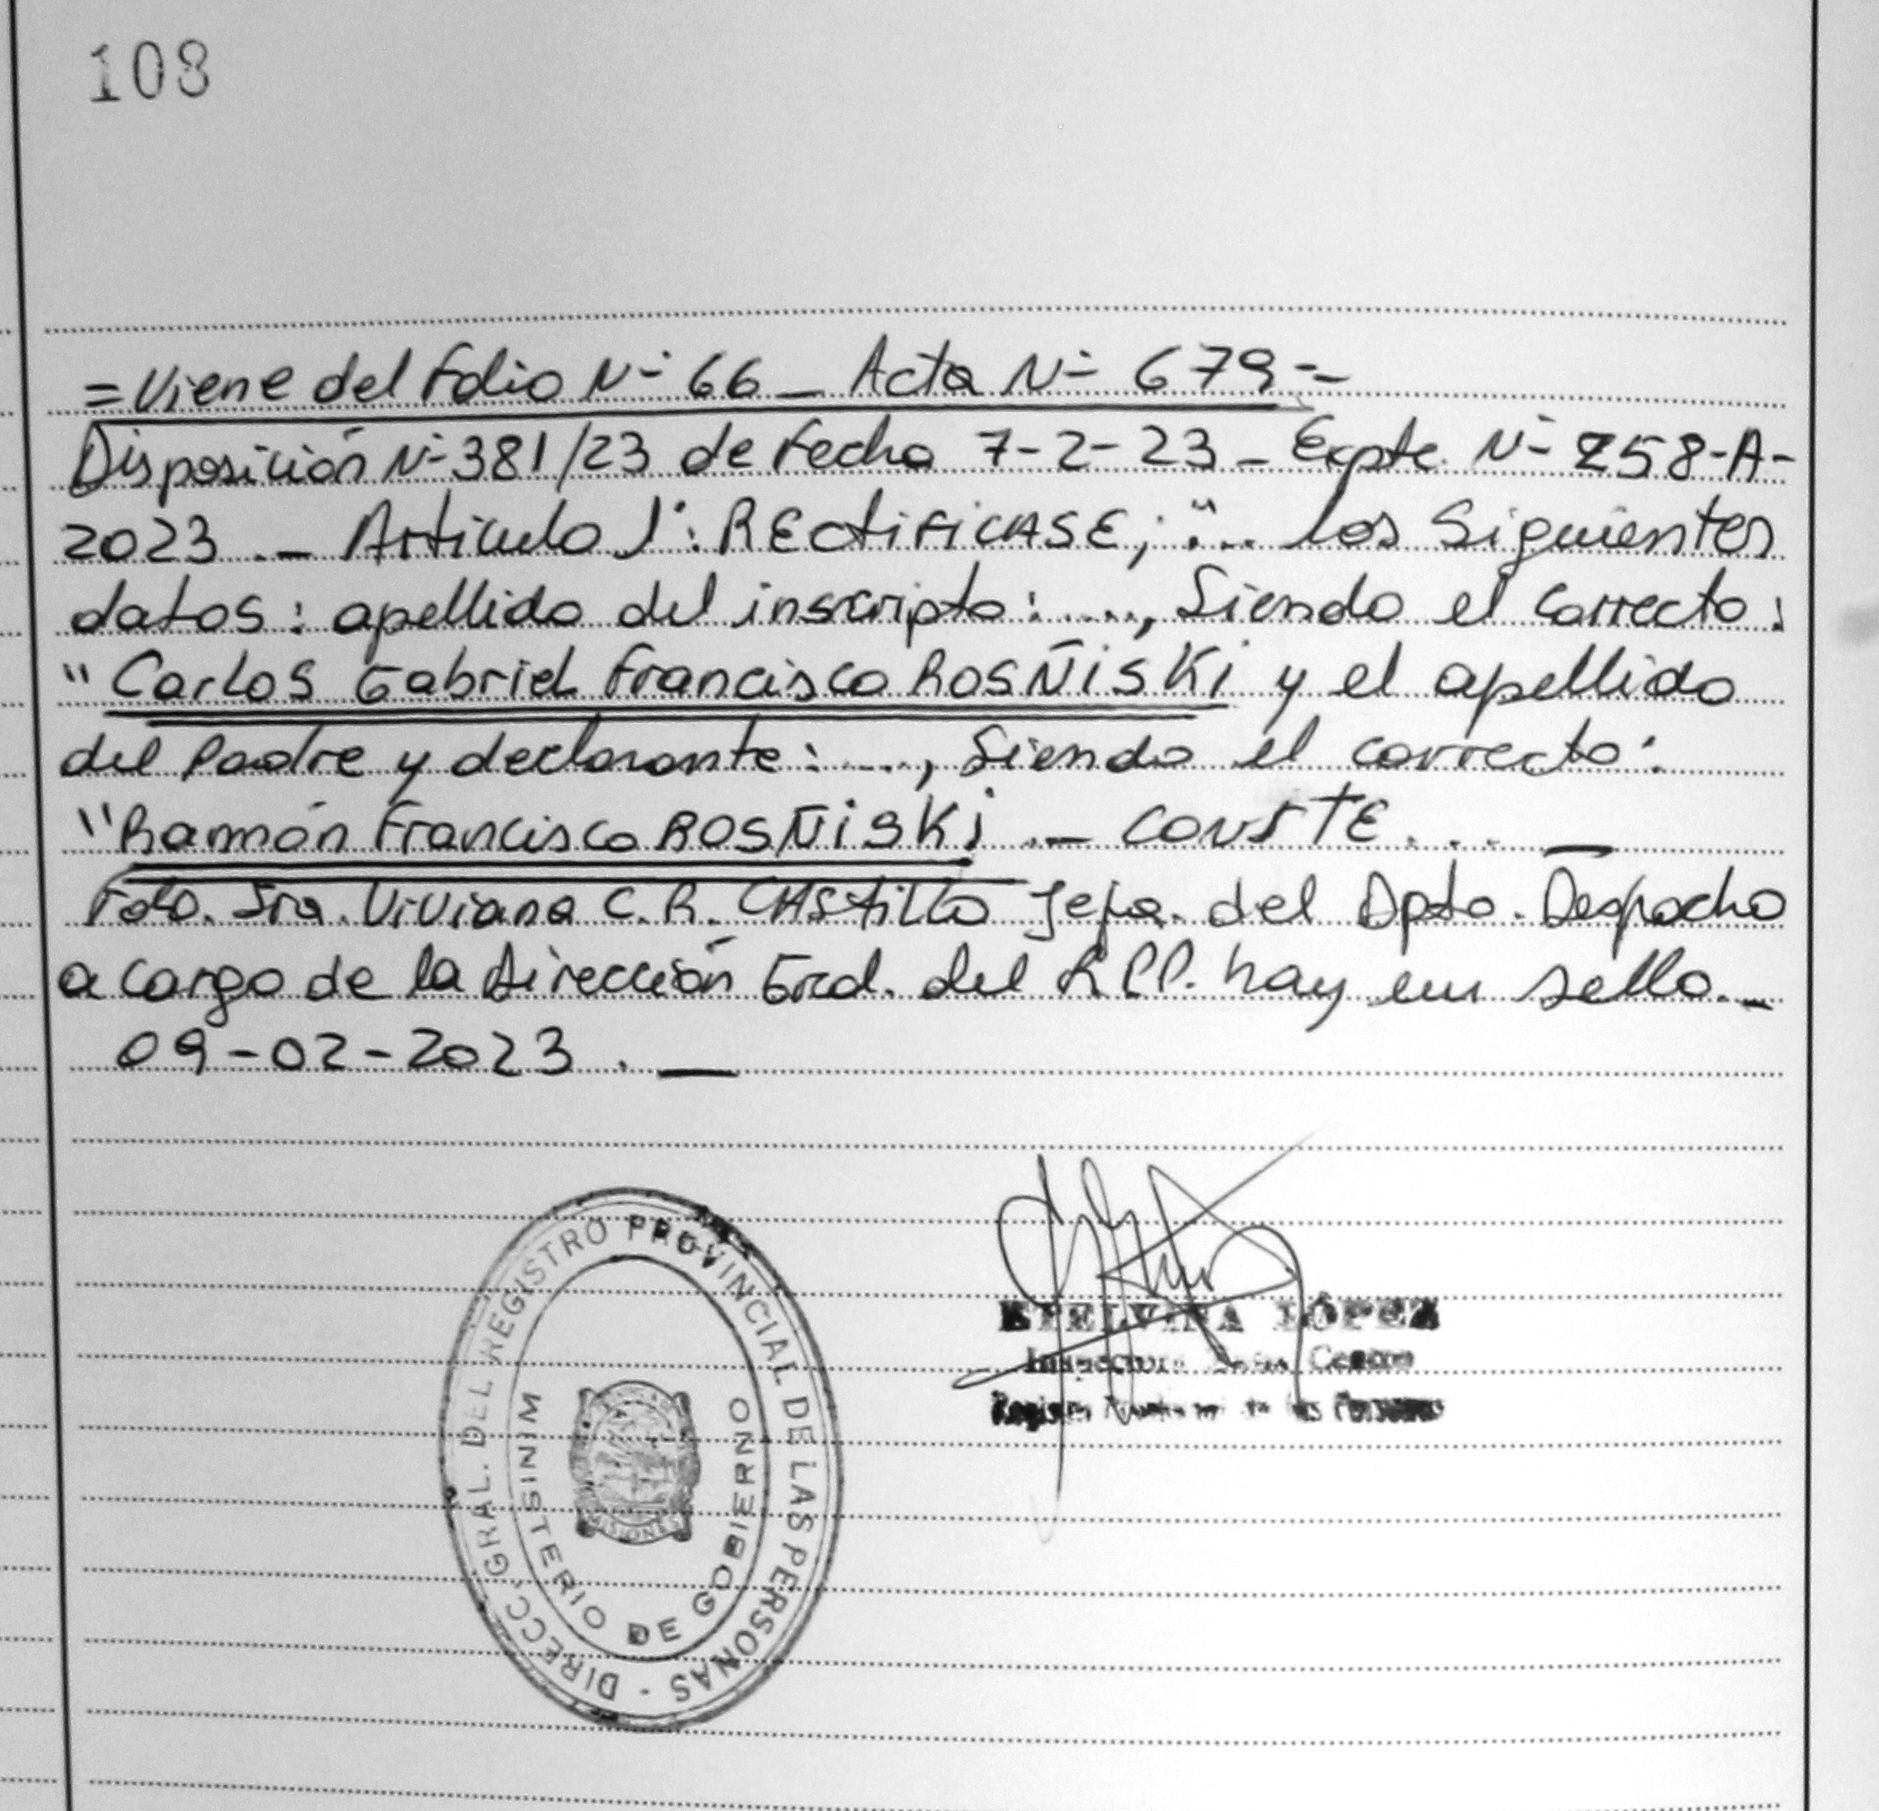 108
=Viene del Folio Nº 66 _ Acta Nº 679=-
Disposición Nº 381/23 de Fecha 7-2-23 - Expte. Nº 258-A-
2023 .- Artículo 1º: RECtiFiCASE; "... los Siguientes
datos: apellido del inscripto: ...., Siendo el correcto:
"Carlos Gabriel Francisco ROSÑiSKi y el apellido
del Padre y declarante: ...., Siendo el correcto:
"Ramón Francisco ROSÑiSKi .- CONSTE... _
Fdo. Sra. Viviana C.R. CAStillo Jefa. del Dpto. Despacho
a cargo de la Dirección Gral. del R.P.P. hay un sello._
09-02-2023. _
DIRECC. GRAL. DEL REGISTRO PROVINCIAL DE LAS PERSONAS -
MINISTERIO DE GOBIERNO
MISIONES
LÓPEZ
Inspectora Centro
Personas